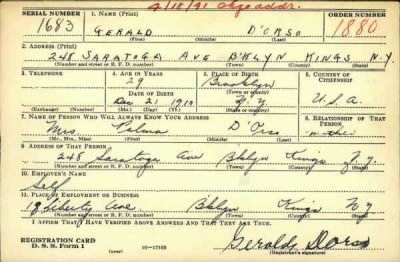 4/18/41 Chge addr.
SERIAL NUMBER 1. NAME (Print) ORDER NUMBER
1683 GERALD D'ORSO 1880
(First) (Middle) (Last)
2. ADDRESS (Print)
248 SARATOGA AVE B'KLYN KINGS N.Y.
(Number and street or R. F. D. number) (Town) (County) (State)
3. TELEPHONE 4. AGE IN YEARS 5. PLACE OF BIRTH 6. COUNTRY OF CITIZENSHIP
29 Brooklyn
DATE OF BIRTH (Town or county)
Dec 21 1910 N.Y. U.S.A.
(Exchange) (Number) (Mo.) (Day) (Yr.) (State or country)
7. NAME OF PERSON WHO WILL ALWAYS KNOW YOUR ADDRESS 8. RELATIONSHIP OF THAT PERSON
Mrs. D'Orso mother
(Mr., Mrs., Miss) (First) (Middle) (Last)
9. ADDRESS OF THAT PERSON
248 Saratoga Ave Bklyn Kings N.Y.
(Number and street or R. F. D. number) (Town) (County) (State)
10. EMPLOYER'S NAME
Self
11. PLACE OF EMPLOYMENT OR BUSINESS
Liberty Ave Bklyn Kings NY
(Number and street or R. F. D. number) (Town) (County) (State)
I AFFIRM THAT I HAVE VERIFIED ABOVE ANSWERS AND THAT THEY ARE TRUE.
REGISTRATION CARD
D. S. S. Form 1 (over) 16—17105
Gerald Dorso
(Registrant's signature)